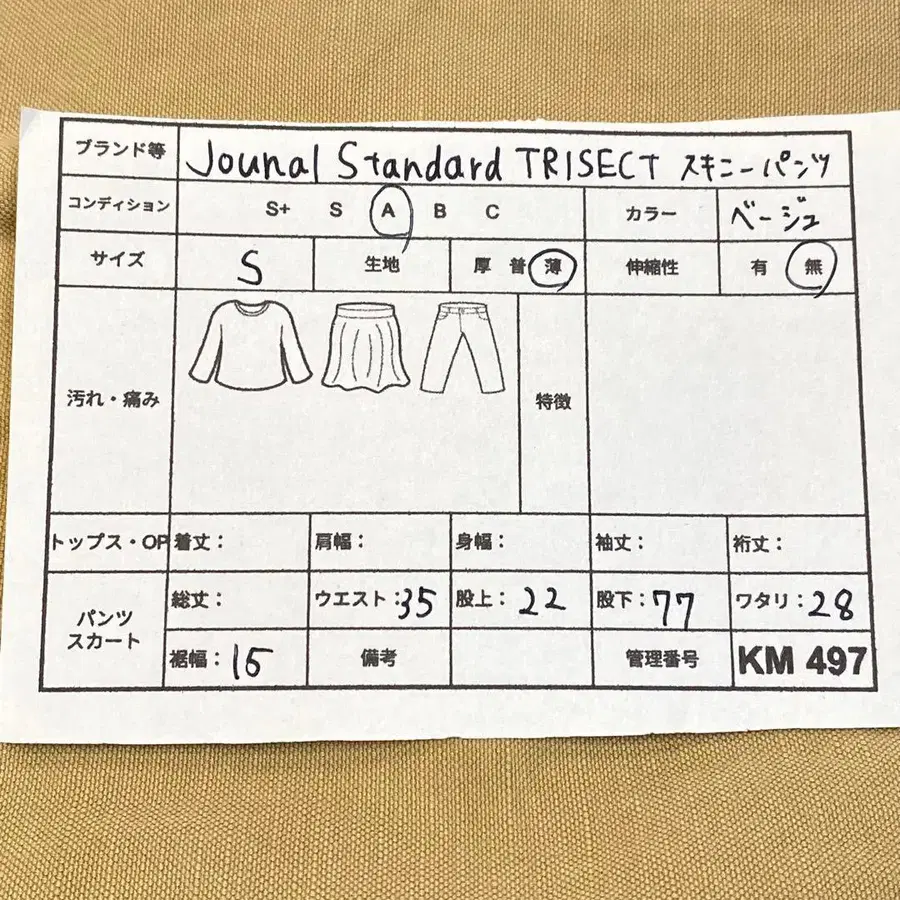 ブランド等 Jounal Standard TRISECT スキニーパンツ
コンディション S+ S A B C カラー ベージュ
サイズ S 生地 厚 普 薄 伸縮性 有 無
汚れ・痛み 特徴
トップス・OP 着丈： 肩幅： 身幅： 袖丈： 裄丈：
パンツ スカート 総丈： ウエスト：35 股上：22 股下：77 ワタリ：28
裾幅：15 備考 管理番号 KM 497